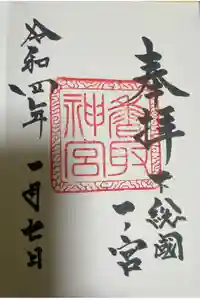 奉拝
下総國
一ノ宮
香取
神宮
令和四年
一月七日